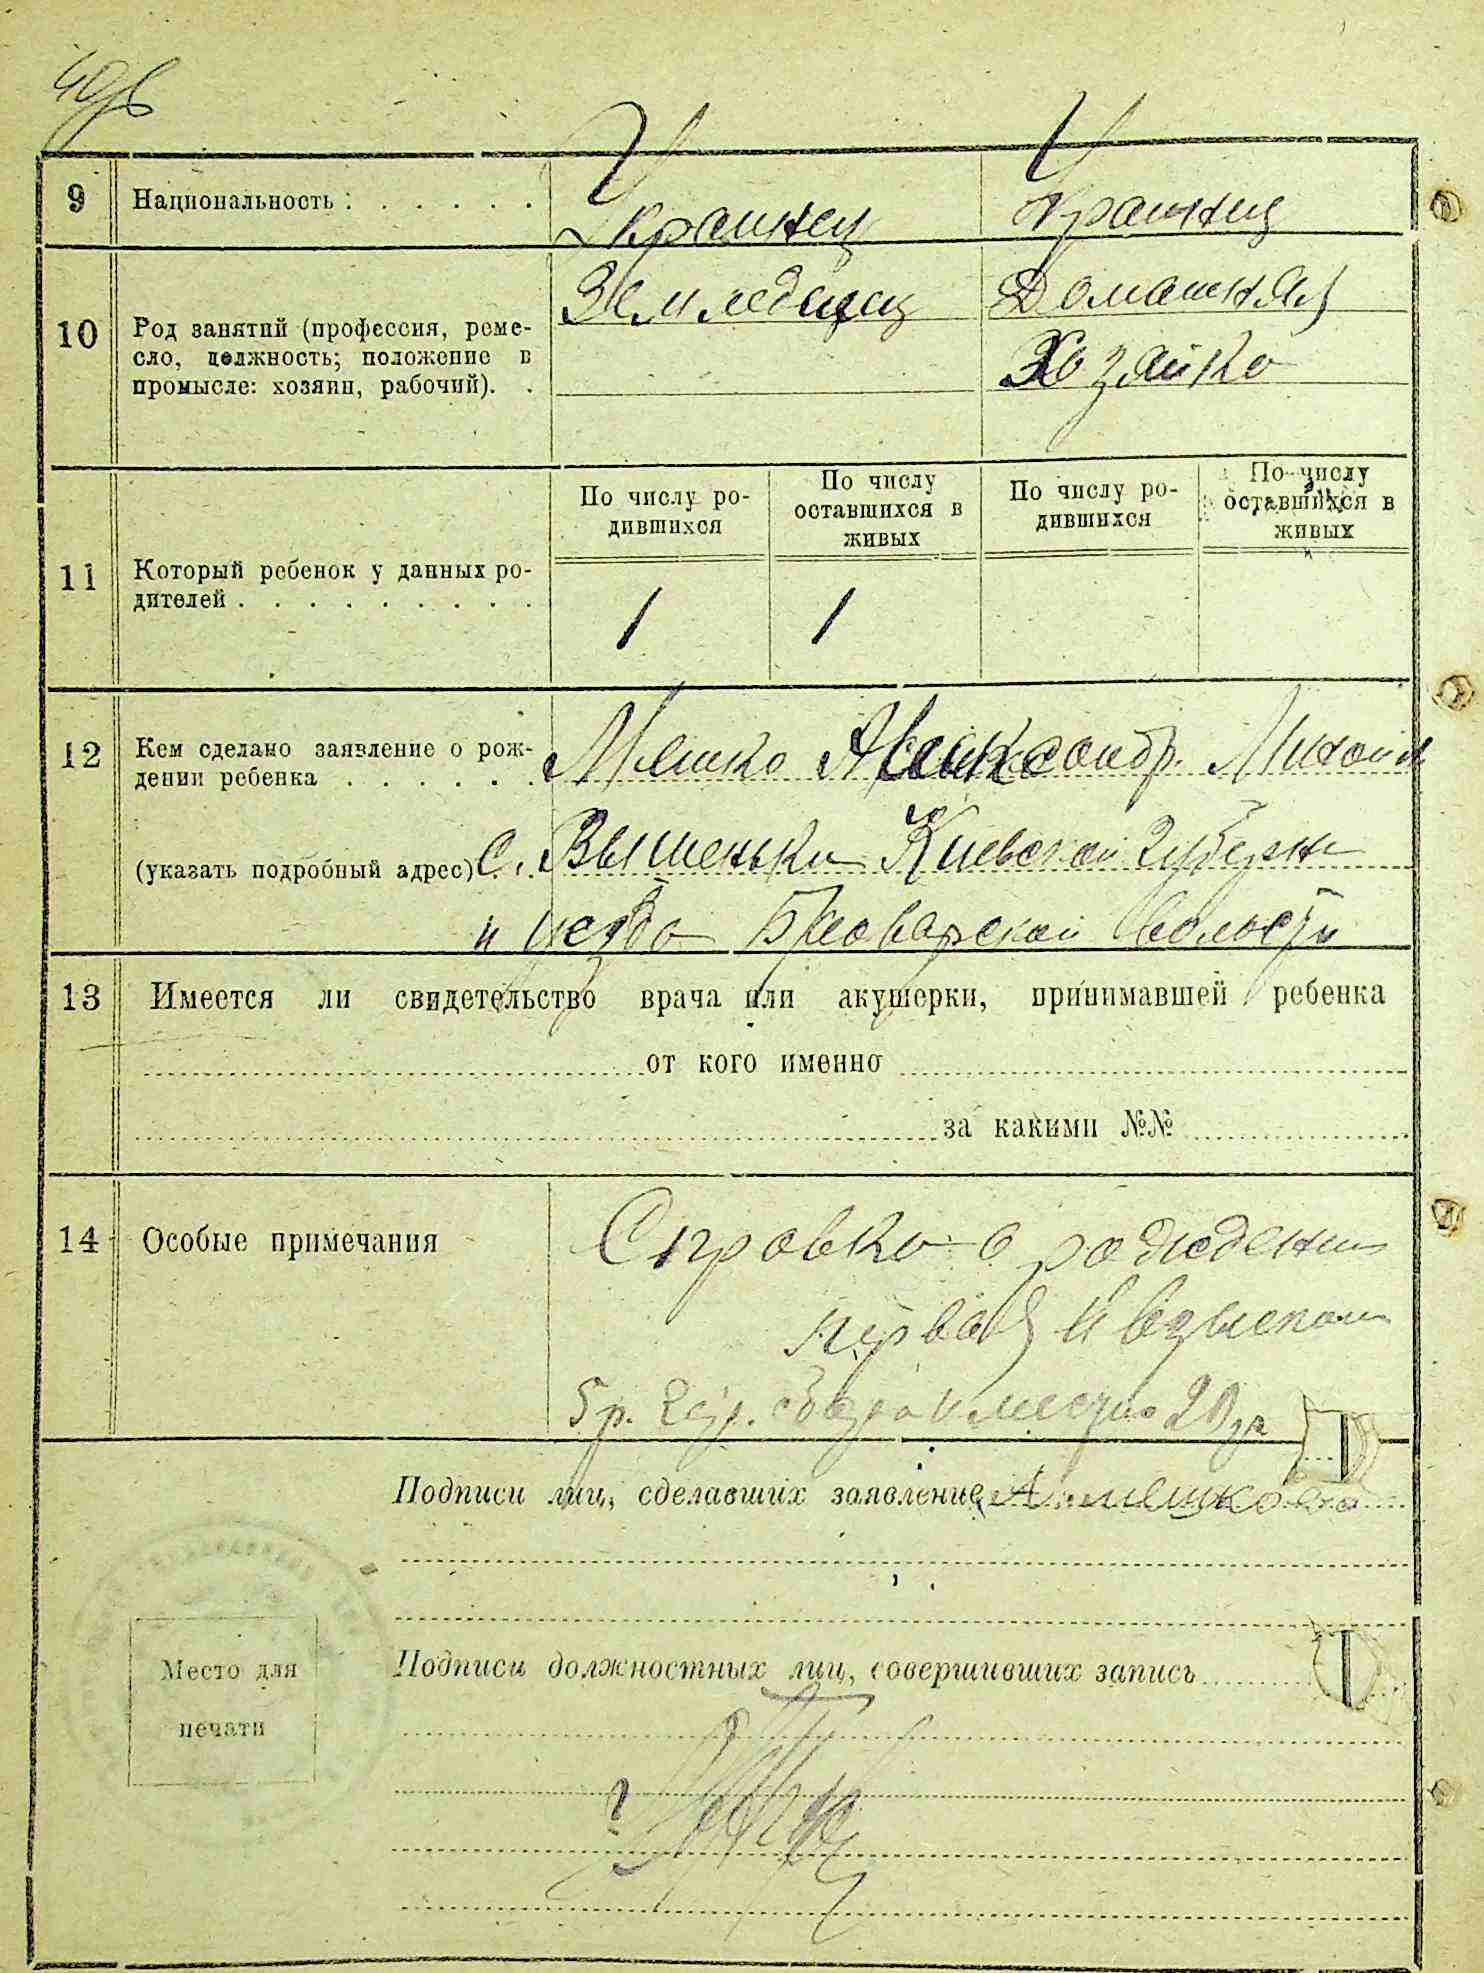 9 Национальность : . . . . . .
Украинец
Украинец
10 Род занятий (профессия, реме-
сло, должность; положение в
промысле: хозяин, рабочий). .
Земледелец
Домашняя
Хозяйка
11 Который ребенок у данных ро-
дителей . . . . . . . . .
По числу ро-
дившихся
По числу
оставшихся в
живых
По числу ро-
дившихся
По числу
оставшихся в
живых
1
1
12 Кем сделано заявление о рож-
дении ребенка . . . . . .
Мешко Александр. Михайл
(указать подробный адрес) с. Вышеньки Киевской Губерни
и уезда Броварской волости
13 Имеется ли свидетельство врача или акушерки, принимавшей ребенка
от кого именно
за какими №№
14 Особые примечания
Справка о рождении
первая и взыскан
5 р. сбора и местно 20
Подписи лиц, сделавших заявление
Подписи должностных лиц, совершивших запись
Место для
печати